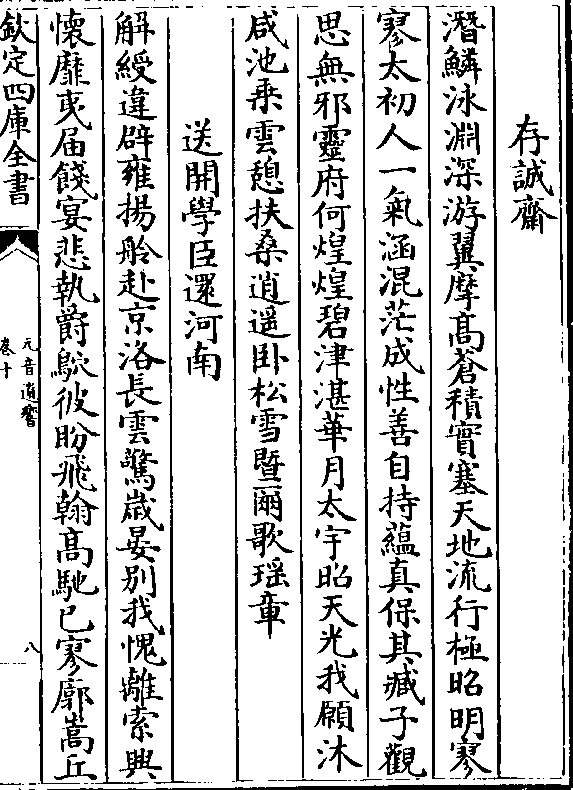 存誠齋
潛鱗泳淵深游翼摩髙蒼積實塞天地流行極昭明寥
寥太初人一氣涵混茫成性善自持蘊真保其臧子觀
思無邪靈府何煌煌碧津湛華月太宇昭天光我願沐
咸池乗雲憩扶桑逍遥卧松雪暨爾歌瑶章
送開學臣還河南
解綬違辟雍揚舲赴京洛長雲驚嵗晏别我愧離索興
懐靡夷届餞宴悲執爵歘彼盼飛翰髙馳已寥廓嵩丘
欽定四庫全書
元音遺響
卷十
八